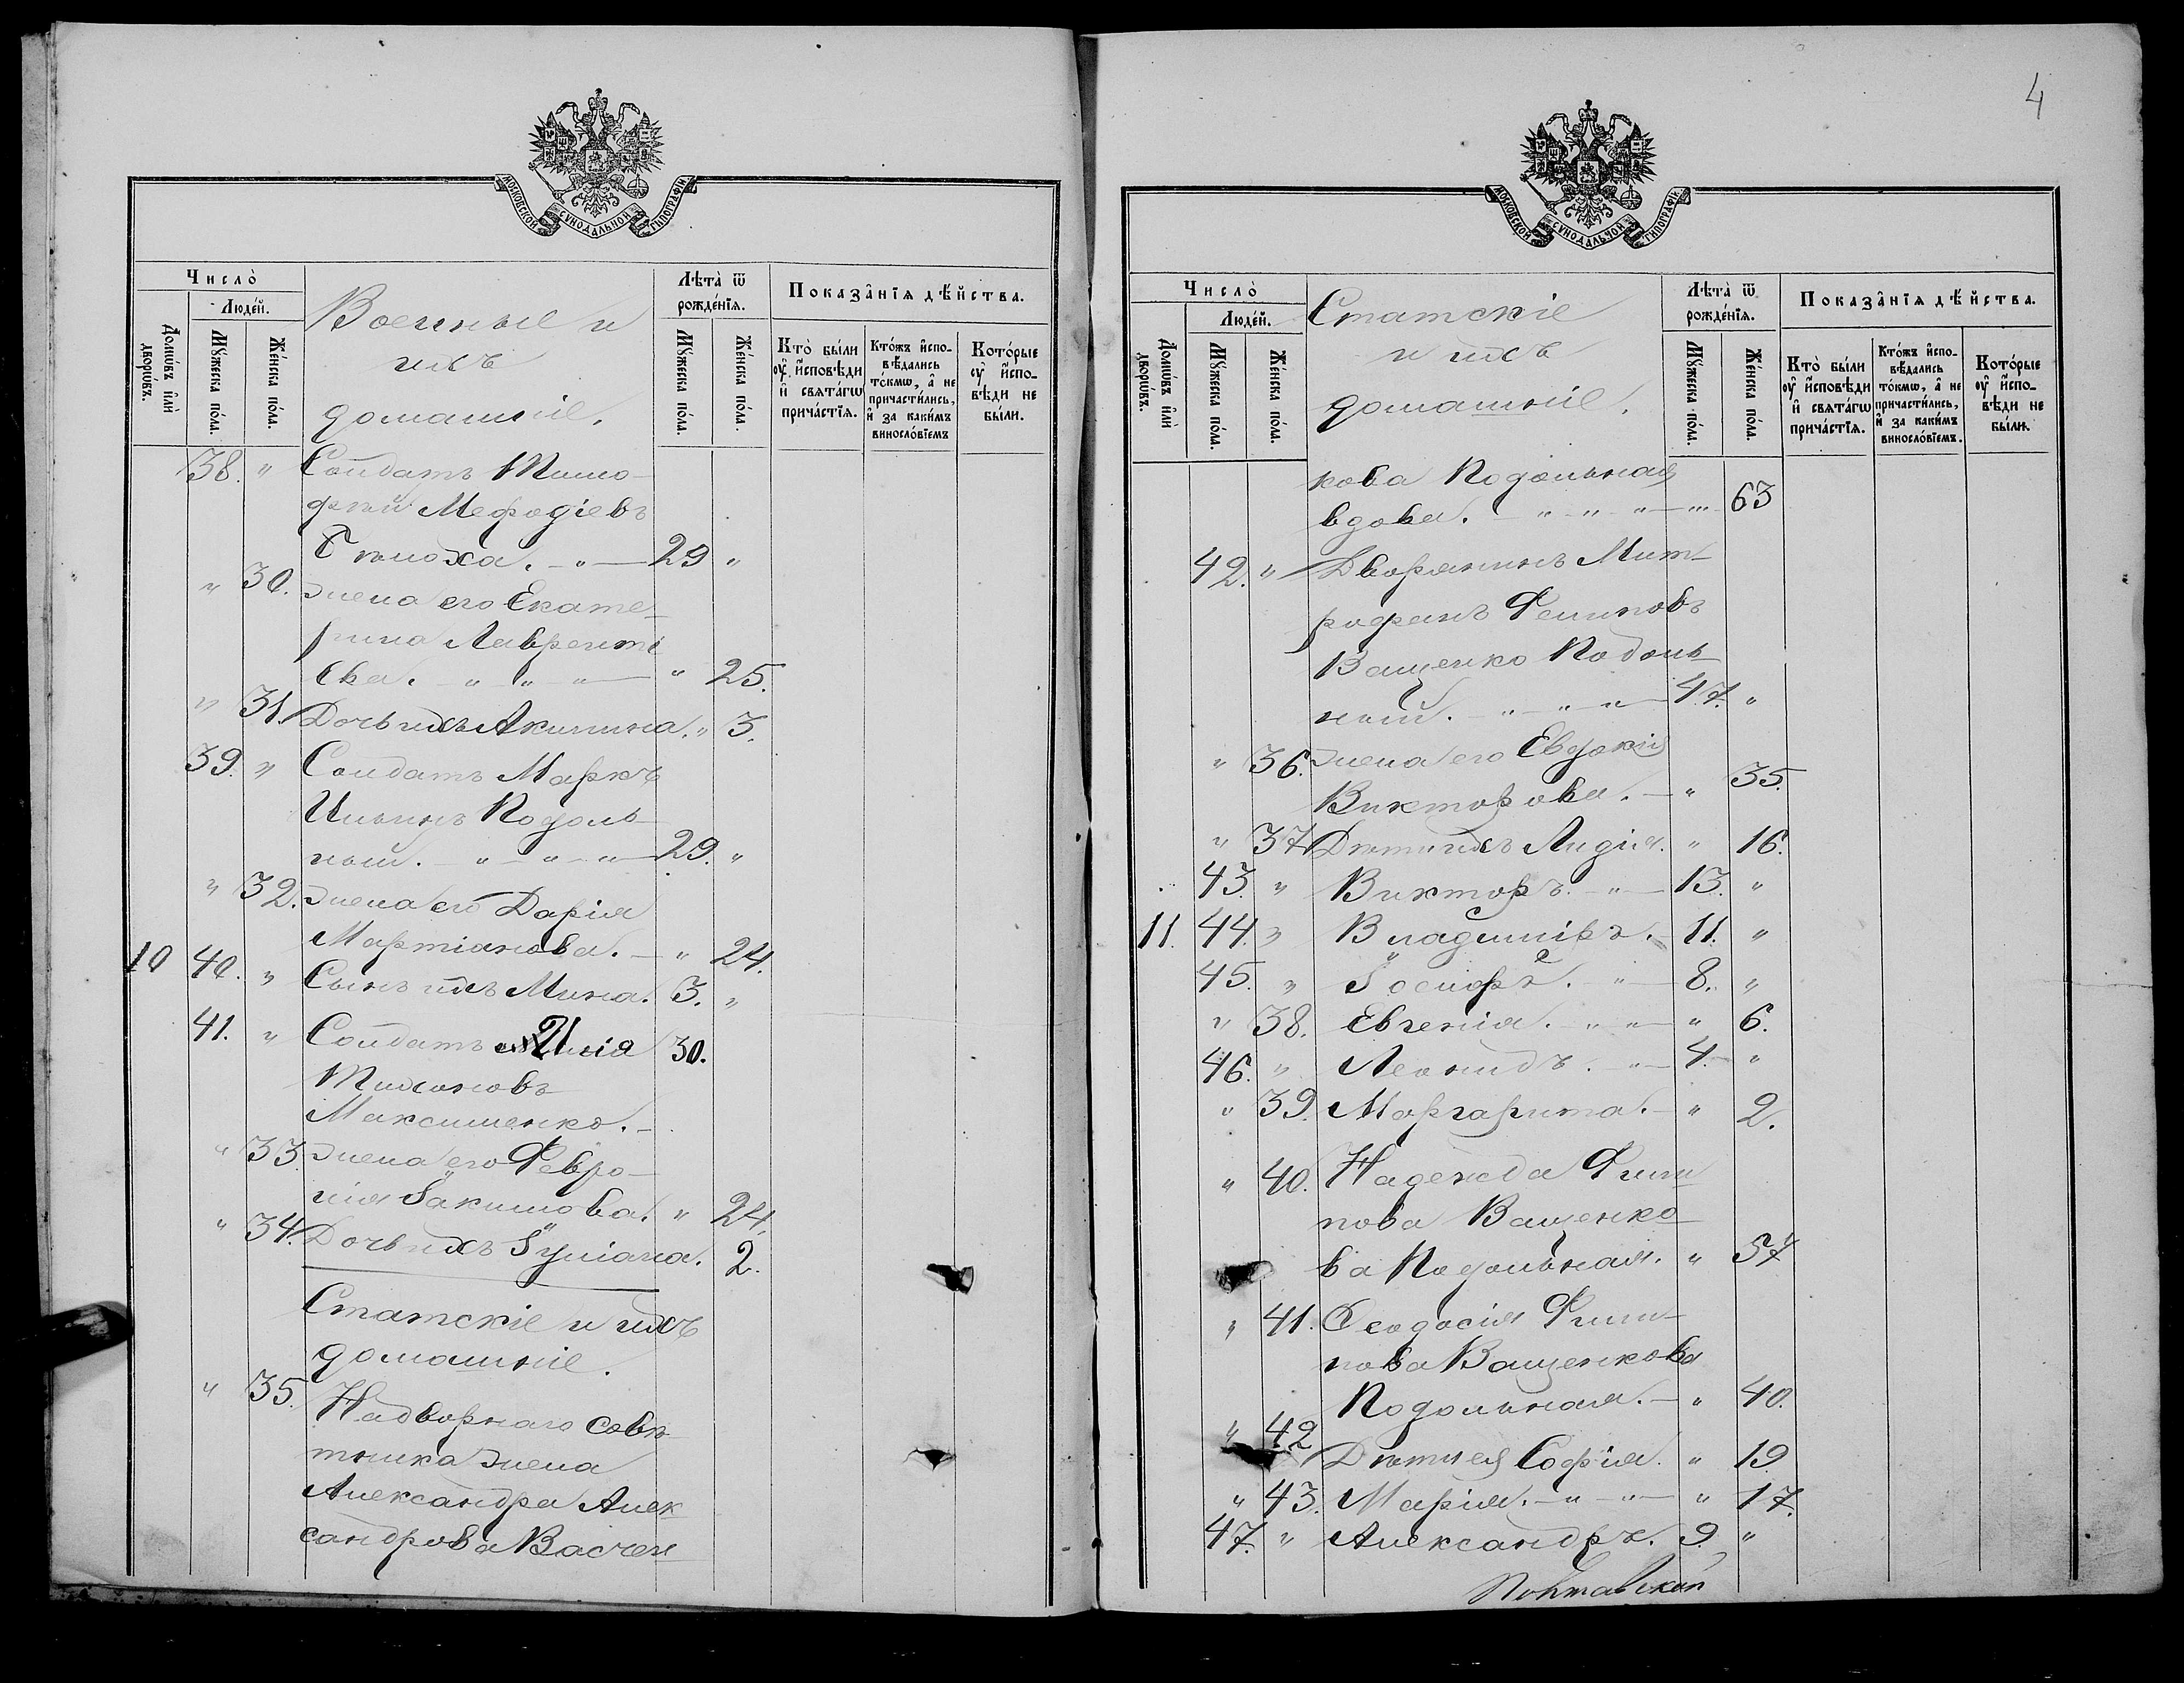 МОСКОВСКОЙ СѴНОДАЛЬНОЙ ТИПОГРАФІИ.
Число̀
Люде́й.
Домѡ́въ и҆лѝ дворѡ́въ.
Мꙋ́жеска по́ла.
Же́нска по́ла.
Военные и
ихъ
домашніе.
Лѣта̀ ѿ рожде́нїѧ.
Мꙋ́жеска по́ла.
Же́нска по́ла.
Показа̂нїѧ дѣ́йства.
Кто̀ бы́ли оу҆ и҆сповѣди и҆ свѧта́гѡ прича́стїѧ.
Кто́жъ и҆спо-вѣ́дались то́кмѡ, а҆ не причасти́лись, и҆ за каки́мъ винослóвїемъ
Кото́рые оу҆ и҆спо-вѣди не бы́ли.
38. " Солдатъ Тимо-
фей Мефодіевъ
Тимоха. - " - 29 "
" 30. жена его Екате-
рина Лавренті
Ева. - " " " - " 25.
" 31. Дочь ихъ Акилина. " 3.
39. " Солдатъ Маркъ
Ильинъ Подоль-
ный. - " - " - " - 29. "
" 32. жена его Дарія
Мартіанова. - " 24.
10 40. " Сынъ ихъ Мина. 3. "
41. " Солдатъ Илія 30.
Тихоновъ
Максименко. -
" 33. жена его Февро-
нія Іакимова. " 24.
" 34. Дочь ихъ Іуліана. 2.
Статскіе и ихъ
домашніе.
" 35. Надворнаго совѣ
тника жена
Александра Алек
сандрова Васчен
4
МОСКОВСКОЙ СѴНОДАЛЬНОЙ ТИПОГРАФІИ.
Число̀
Люде́й.
Домѡ́въ и҆лѝ дворѡ́въ.
Мꙋ́жеска по́ла.
Же́нска по́ла.
Статскіе
и ихъ
домашніе.
Лѣта̀ ѿ рожде́нїѧ.
Мꙋ́жеска по́ла.
Же́нска по́ла.
Показа̂нїѧ дѣ́йства.
Кто̀ бы́ли оу҆ и҆сповѣди и҆ свѧта́гѡ прича́стїѧ.
Кто́жъ и҆спо-вѣ́дались то́кмѡ, а҆ не причасти́лись, и҆ за каки́мъ винослóвїемъ.
Кото́рые оу҆ и҆спо-вѣди не бы́ли.
кова Подольная
вдова. - " - " - " - " 63
42. " Дворянинъ Мит-
рофанъ Филиповъ
Ващенко Подоль-
ный. - " - " - " - 47. "
" 36. жена его Евдокія
Викторова. - " 35.
" 37 Дѣти ихъ Лидія. " 16.
43. " Викторъ. - " - 13. "
11. 44. " Владиміръ. - 11. "
45. " Іосифъ. - " - 8. "
" 38. Евгенія. - " " - " 6.
46. " Леонидъ. - " - 4. "
" 39. Маргарита. - " 2.
" 40. Надежда Фили
пова Ващенко-
ва Подольная. " 57
" 41. Феодосія Фили-
пова Ващенкова
Подольная. - " 40.
" 42 Дѣти ея Софія. " 19
" 43. Марія. - " - " - " 17.
47. " Александръ. 9. "